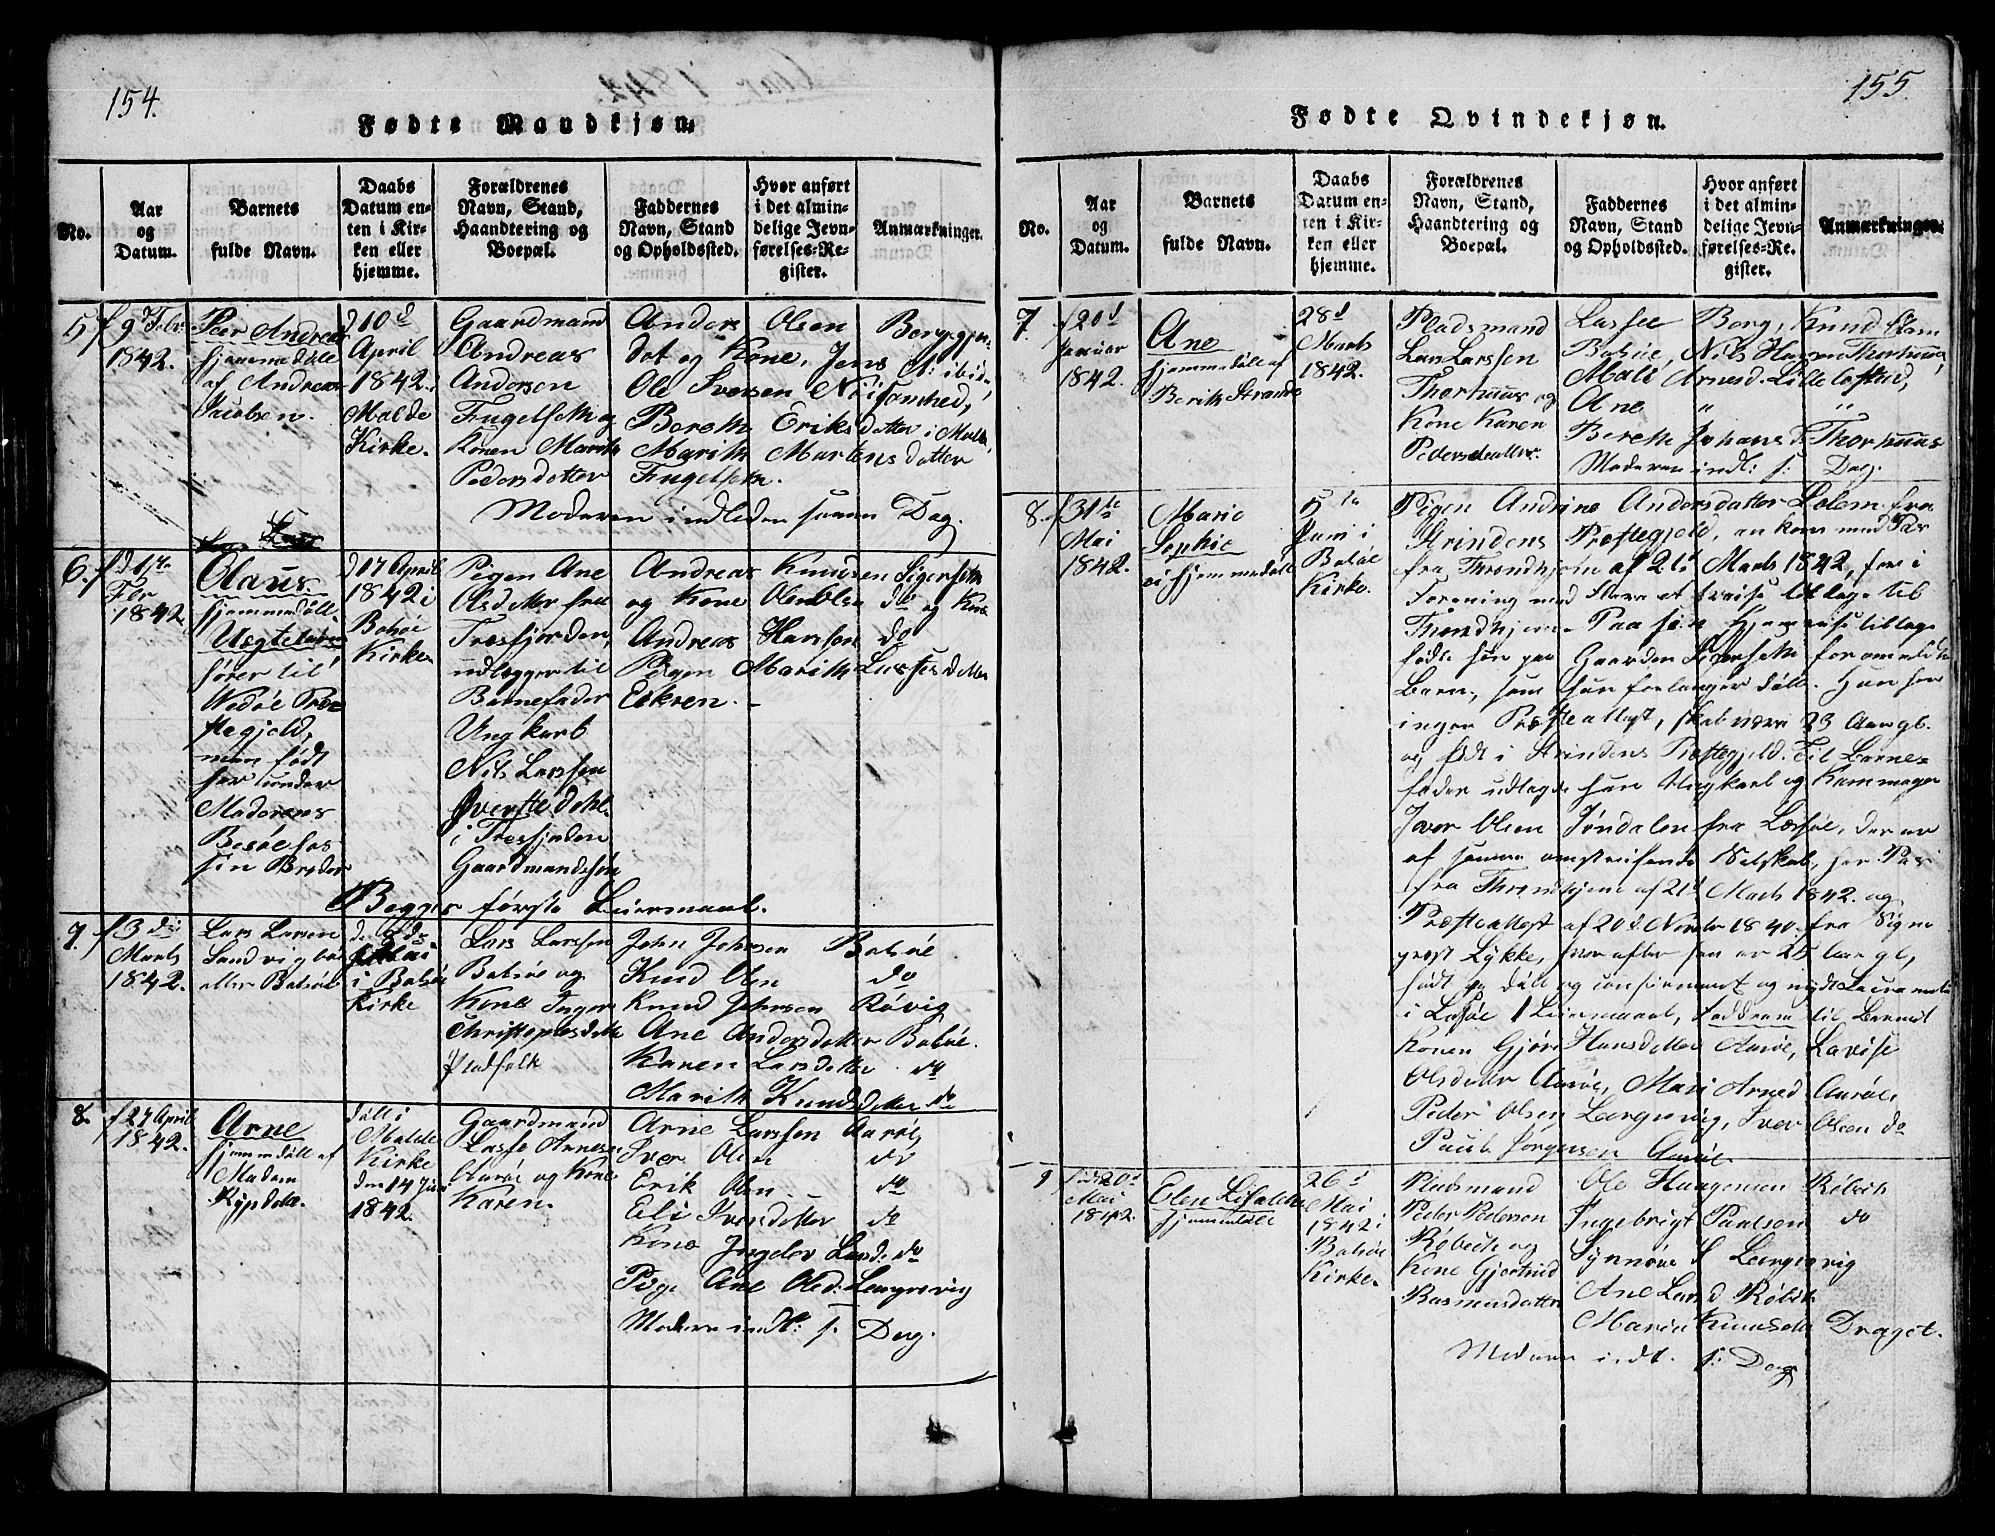 154.
Fødte Mandkjøn.
No.
Aar
og
Datum.
Barnets
fulde Navn.
Daabs
Datum en-
ten i Kir-
ken eller
hjemme.
Forældrenes
Navn, Stand,
Haandtering og
Boepæl.
Faddernes
Navn, Stand
og Opholdssted.
Hvor anført
i det almin-
delige Jevn-
førelses-Re-
gister.
Anmærkninger.
5
f 9 Febr
1842.
Peer Andreas
hjemmedøbt
af Andreas
Jacobsen.
d 10d
April
1842 i
Molde
Kirke.
Gaardmand
Andreas
Andersen
Fugelseth og
Konen Marith
Pedersdatter
Anders Olsen
og Kone, Jens
Ole Iversen
Bereth Eriksdatter i Molde
Marith Martensdatter
Fugelseth.
Moderen indleden samme Dag.
6.
Febr
1842
Olaus
hjemmedøbt
Uægte
hører til
Wedøe Præ-
stegjeld,
men født
her under
Moderens
Besøe hos
sin Broder
d 17 April
1842 i
Bolsøe
Kirke
Pigen Ane
Olsdatter fra
Tresfjorden,
udlægger til
Barnefader
Ungkarl
Nils Larssen
i Tresfjorden
Gaardmandssøn
Andreas Knudsen Sigerseth
og Kone Olsen do og Kone
Andreas Hanssen do
Pigen Marith Lassesdatter
Begges første Leiermaal.
7.
f 3 die
Marts
1842.
Lars Larsen
eller Bolsøe
den 8 de
i Bolsøe
Kirke
Lars Larssen
Bolsøe og
Kone Inger
Christophersdatter
Pladsfolk
John Johnsen Bolsøe
Knud Olsen do
Knud Johnsen Røvig
Ane Andersdatter Bolsøe.
Karen Larsdatter do
Marith Knudsdatter do
8.
f 27 April
1842.
Arne
hjemmedøbt af
Madam
døbt i
Molde
Kirke
den 14 Juni
1842.
Gaardmand
Lasse Arnesen
Aarøe og Kone
Karen.
Arne Larssen Aarøe
Iver Olsen do
Erik Olsen do
Eli Iversdatter do
Kone Ingebor Larsd. do
Pige Ane Olsd: Længsvig
Modern indl: s. Dag.
155.
Fødte Qvindekjøn.
No.
Aar
og
Datum.
Barnets
fulde Navn.
Daabs
Datum en-
ten i Kir-
ken eller
hjemme.
Forældrenes
Navn, Stand,
Haandtering og
Boepæl.
Faddernes
Navn, Stand
og Opholdssted.
Hvor anført
i det almin-
delige Jevn-
førelses-Re-
gister.
Anmærkninger.
7.
f 20d
Januar
1842.
Ane
hjemmedøbt af
Berith Strande
28d
Marts
1842.
Pladsmand
Lars Larssen
Thorhuus og
Kone Karen
Pedersdatter.
Lasse Borg, Knud
Bolsøe, Nils Hansen Thorhuus,
Mali Arnesd. Lillelostad,
Ane " "
Bereth Johansd Thorhuus
Moderen indl: s: Dag.
8.
f 31te
Mai
1842.
Marie
Sophie
ei hjemmedøbt
5te
Juni i
Bolsøe
Kirke.
Pigen Andrine Andersdatter Solem fra
Strindens Præstegjeld, an kom med Pas
fra Throndhjem af 21d Marts 1842, for i
Forening med flere at reise tillage til
Throndhjem. Paa sin Hjemreise tillage
fødte hun paa Gaarden Sigerseth foranmeldte
Barn, som hun forlanger døbt. Hun har
ingen Præsteattest, skal være 23 Aar gl.
og født i Strindens Præstegjeld. Til Barne-
fader udlagde hun Ungkarl og Kammager
Iver Olsen Jøndalen fra Læssøe, der er
af samme omstreifende Selskab, har Pas
fra Throndhjem af 21d Marts 1842. og
Præsteattest af 20 d. Novbr 1840 fra Sogne
præst Lykke, hvorefter han er 25 Aar gl,
født og døbt og confirmeret og
i Læsøe 1 Leiermaal, Faddrene til Barnet
Konen Gjøri Hansdatter Aarøe, Lavise
Olsdatter Aarøe, Mari Arnesd Aarøe,
Peder Olsen Længsvig, Iver Olsen do
Paul Jørgensen Aarøe.
9
20d
Mai
1842.
Elen
hjemmedøbt
26d
Mai
1842 i
Bolsøe
Kirke.
Pladsmand
Peder Pedersen
Røbech og
Kone Gjertrud
Rasmusdatter
Ole Haagensen Røbech
Ingebrigt Paulson do
Synnøve Længsvig
Ane Larsd Røbech
Maria Knudsd Draget.
Moderen indl. s: Dag